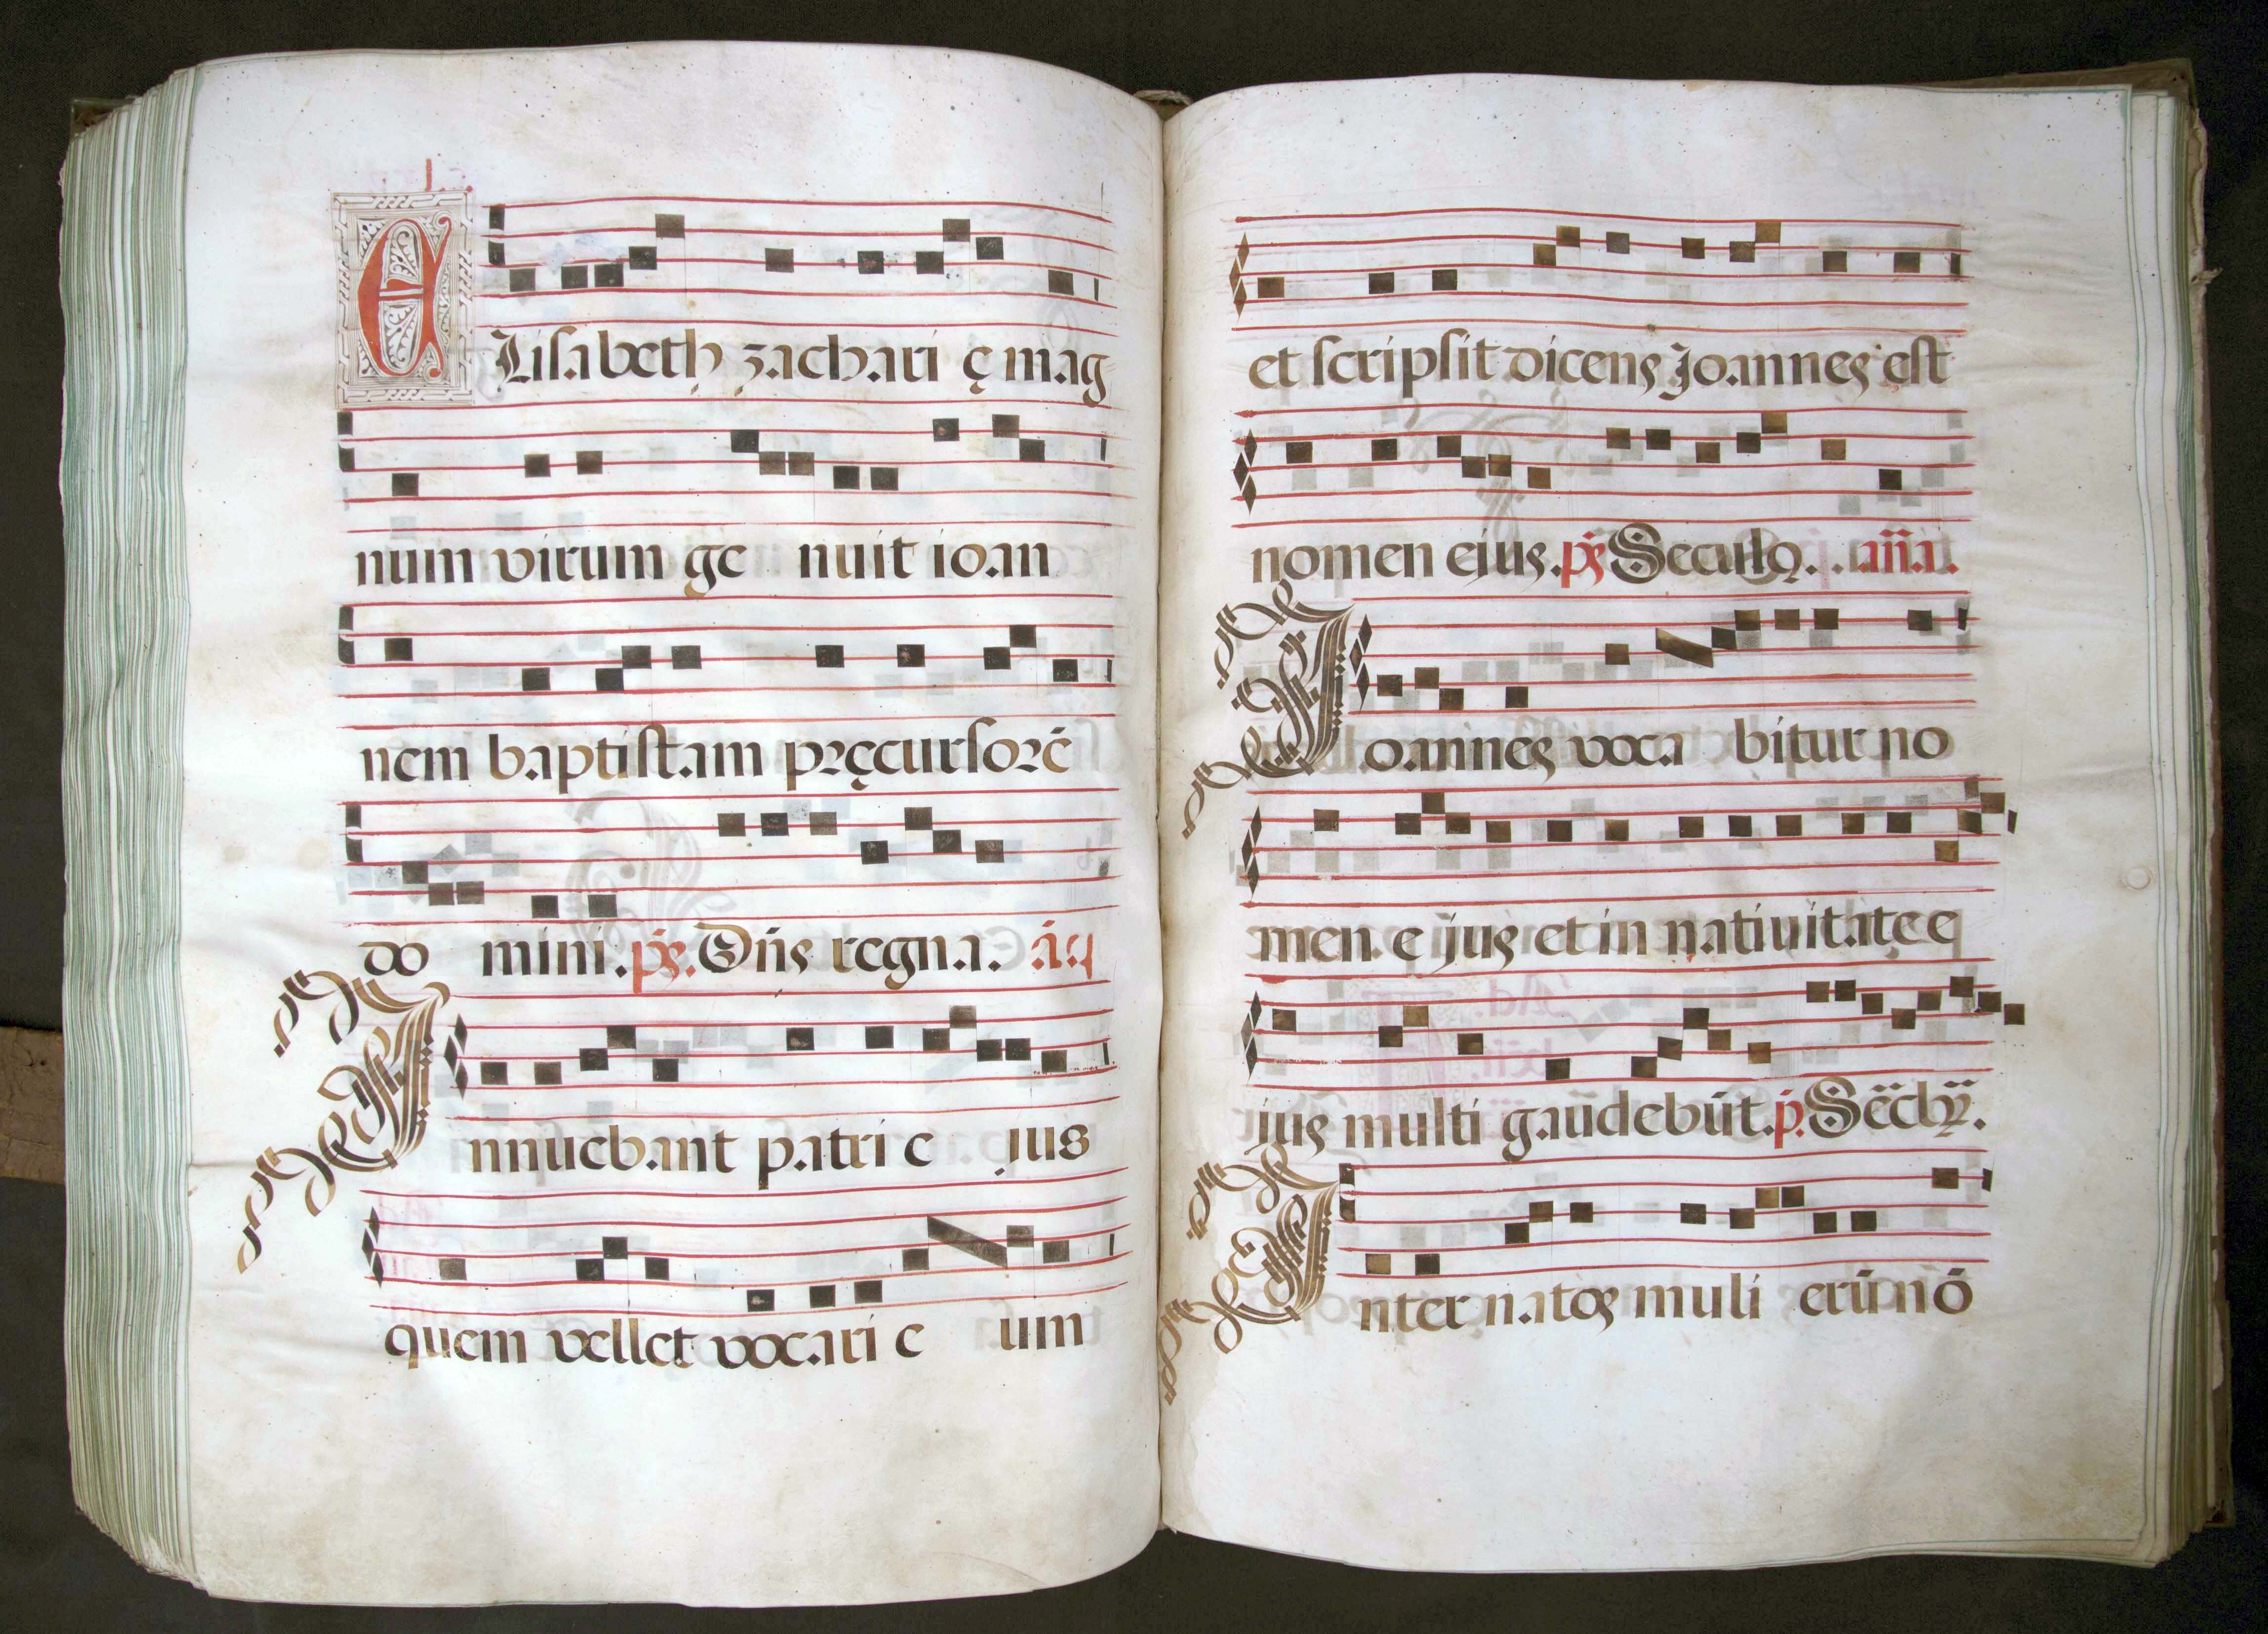 ELisabeth zachari ę mag
num virum ge nuit ioan
nem baptistam pręcursorē
do mini. ps̄. Dn̄s regna. ān̄
Innuebant patri e jus
quem vellet vocari e um
et scripsit dicens Joannes est
nomen ejus. ps̄
Joannes voca bitur no
men e jus et in natiuitate e
jus multi gaūdebūt. p̄.
Inter natos muli erū nō